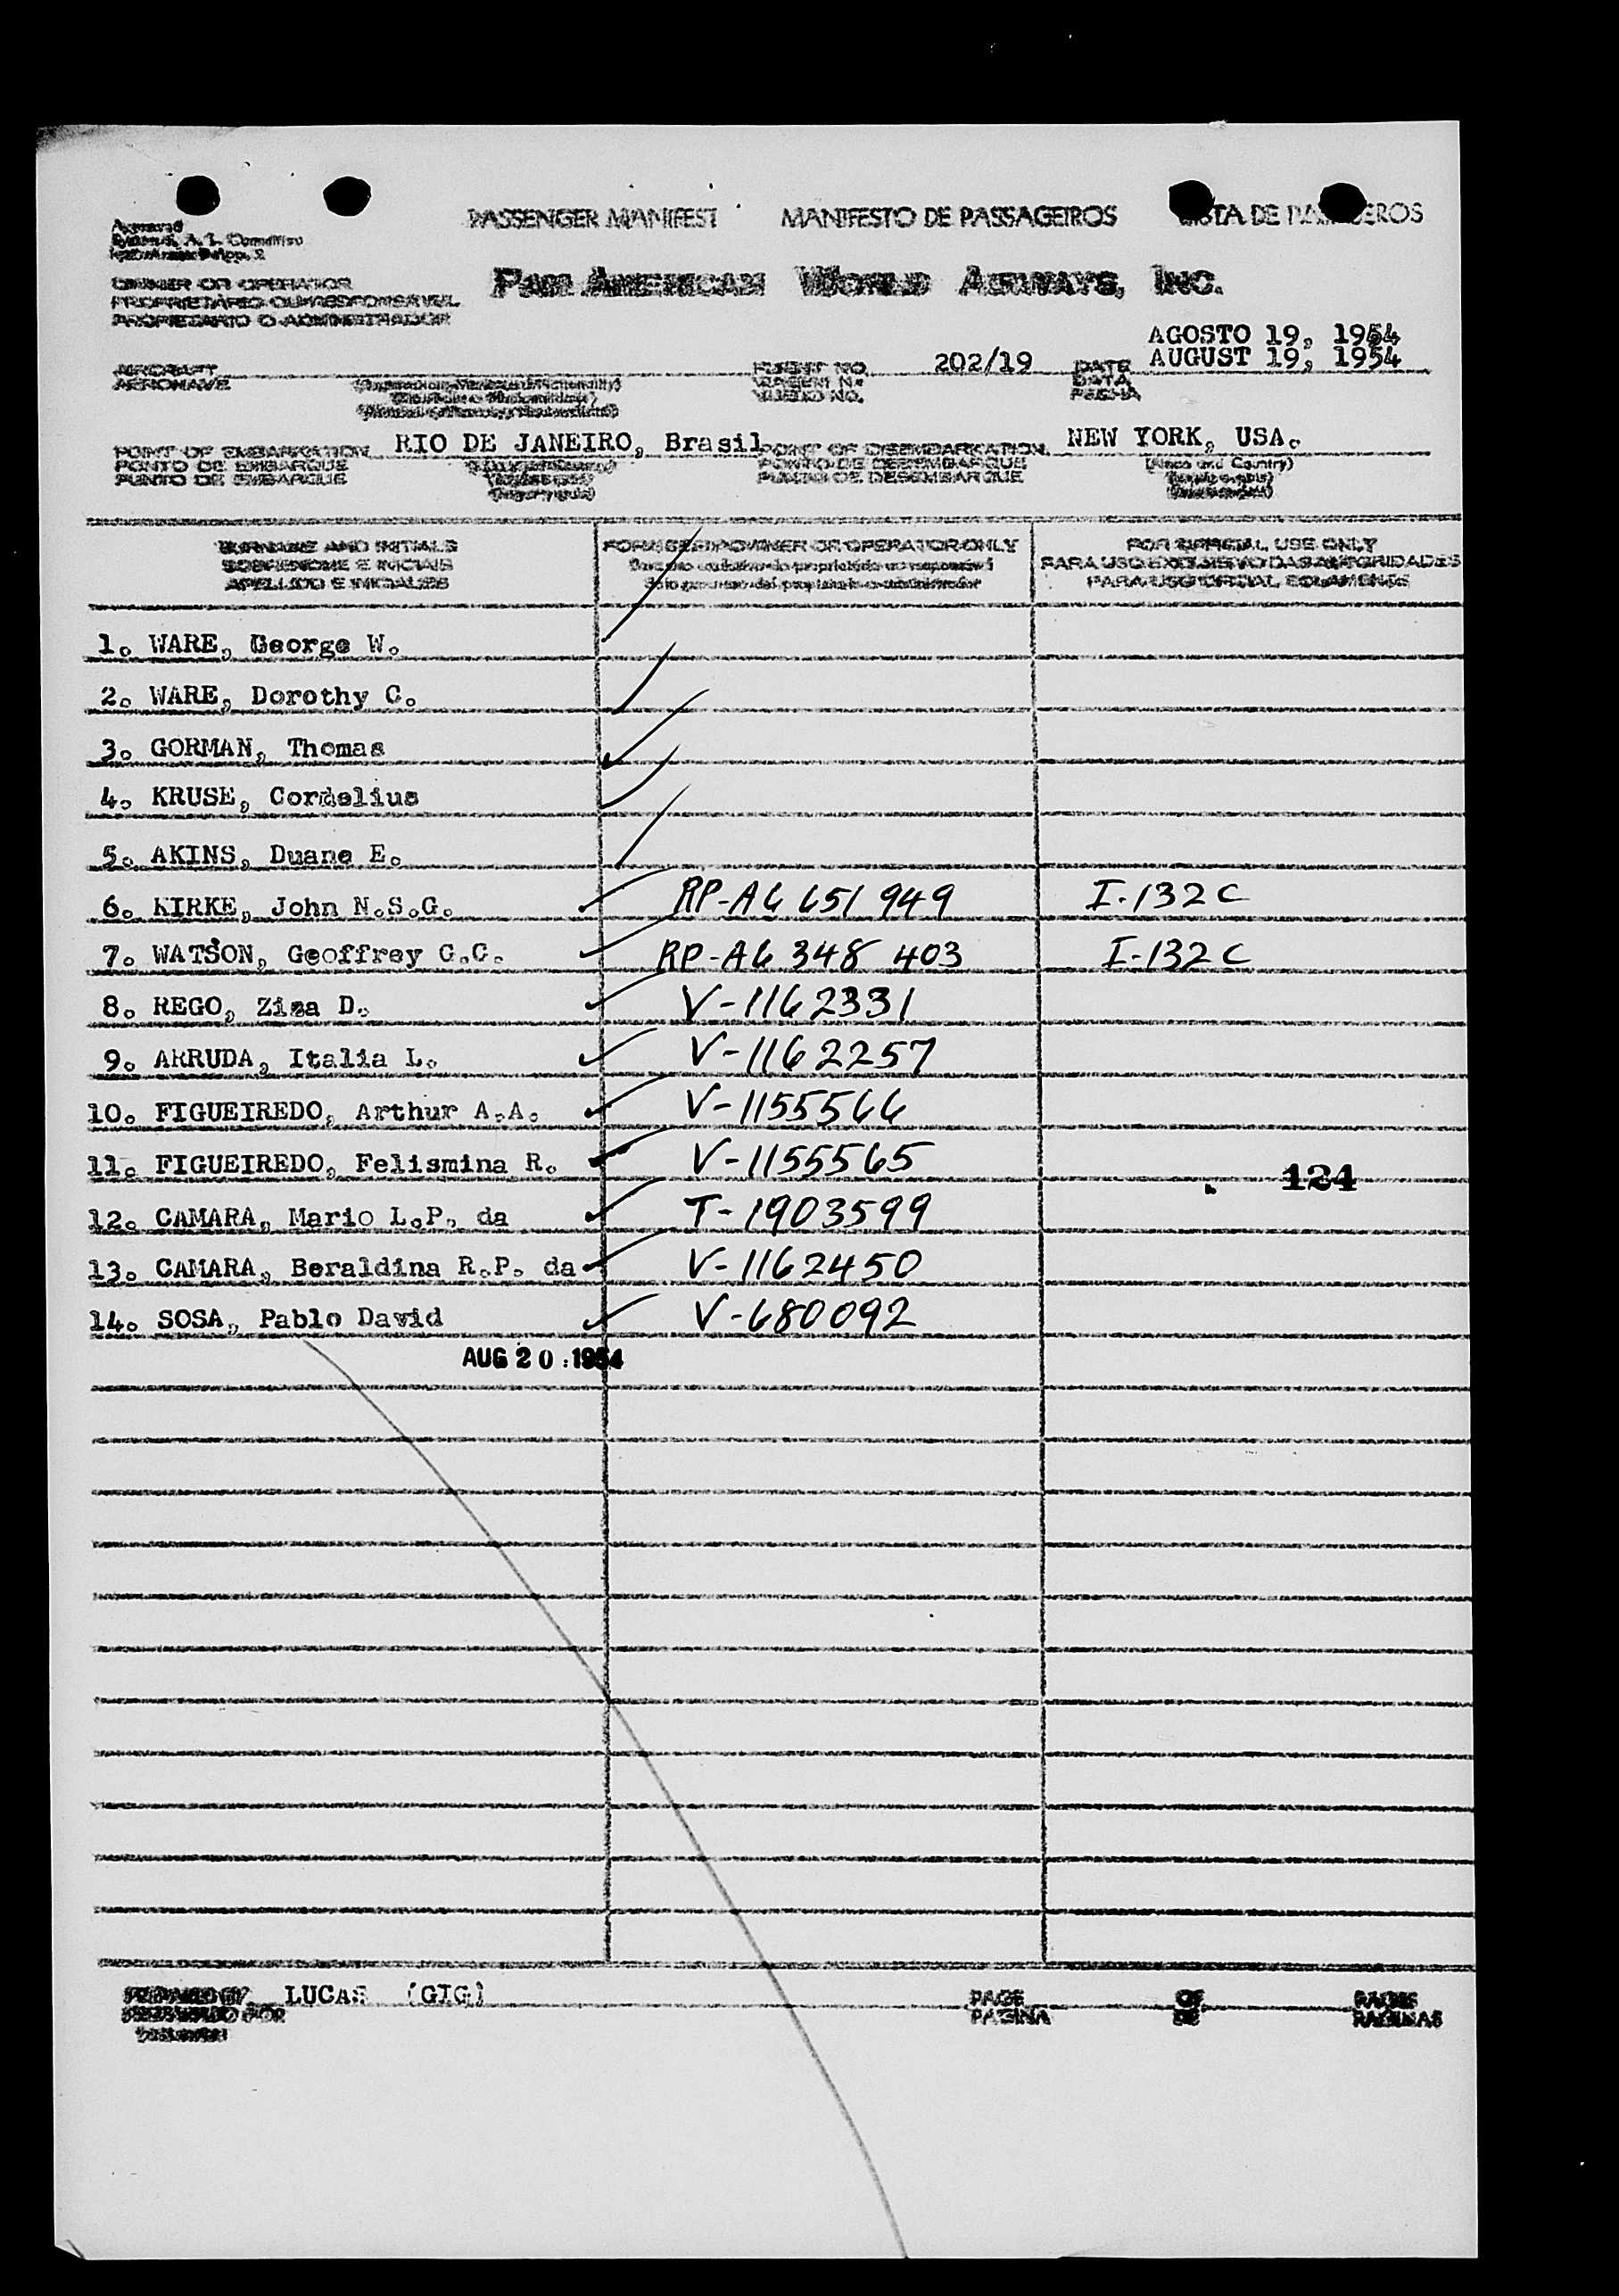 PASSENGER MANIFEST MANIFESTO DE PASSAGEIROS LISTA DE PASAJEROS
OWNER OR OPERATOR
PROPRIETÁRIO OU RESPONSÁVEL
PROPIETARIO O ADMINISTRADOR
PAN AMERICAN WORLD AIRWAYS, INC.
AGOSTO 19, 1954
AIRCRAFT FLIGHT NO. 202/19 DATE AUGUST 19, 1954
AERONAVE DATA
FECHA
POINT OF EMBARKATION RIO DE JANEIRO, Brasil POINT OF DISEMBARKATION NEW YORK, USA.
PONTO DE EMBARQUE PONTO DE DESEMBARQUE (Place and Country)
PUNTO DE EMBARQUE PUNTO DE DESEMBARQUE
SURNAME AND INITIALS FOR USE BY OWNER OR OPERATOR ONLY FOR OFFICIAL USE ONLY
SOBRENOME E INICIAIS PARA USO EXCLUSIVO DAS AUTORIDADES
APELLIDO E INICIALES PARA USO OFICIAL SOLAMENTE
1. WARE, George W.
2. WARE, Dorothy C.
3. GORMAN, Thomas
4. KRUSE, Cordelius
5. AKINS, Duane E.
6. KIRKE, John N.S.G. RP-A6 651 949 I-132C
7. WATSON, Geoffrey G.C. RP-A6 348 403 I-132C
8. REGO, Ziza D. V-1162331
9. ARRUDA, Italia L. V-1162257
10. FIGUEIREDO, Arthur A.A. V-1155566
11. FIGUEIREDO, Felismina R. V-1155565
124
12. CAMARA, Mario L.P. da T-1903599
13. CAMARA, Beraldina R.P. da V-1162450
14. SOSA, Pablo David V-680092
AUG 20 1954
LUCAS (GIG) PAGE OF PAGES
PAGINA DE PAGINAS